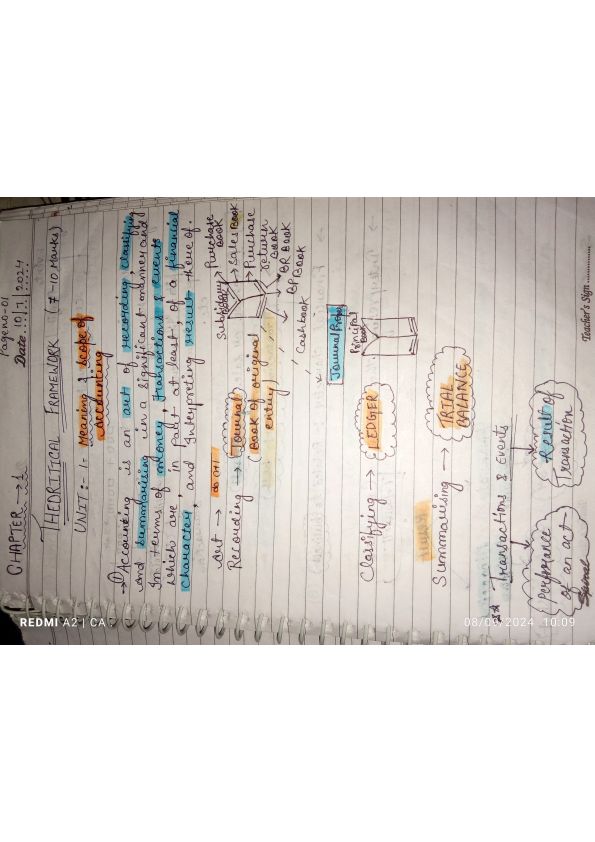 Page no-01
CHAPTER → 1
Date 10/1/2024
THEORITICAL FRAMEWORK (7-10 Marks)
UNIT :- 1. Meaning & scope of
Accounting
→ Accounting is an art of recording, classifying
and summarising in a significant manner and
In terms of money, transactions & events
which are, in part at least, of a financial
character, and Interpreting result there of.
Art →
Recording → Journal
(Book of original
entry)
Subsidiary
Book
Purchase
Book
Sales Book
Purchase
Return
Book
BR Book
BP Book
Cashbook
Journal Proper
Classifying → LEDGER
Principal
Book
Summarising → TRIAL
BALANCE
Transactions & Events
Performance
of an act
Result of
Transaction
Spiral
Teacher's Sign
REDMI A2 | CA
10:09